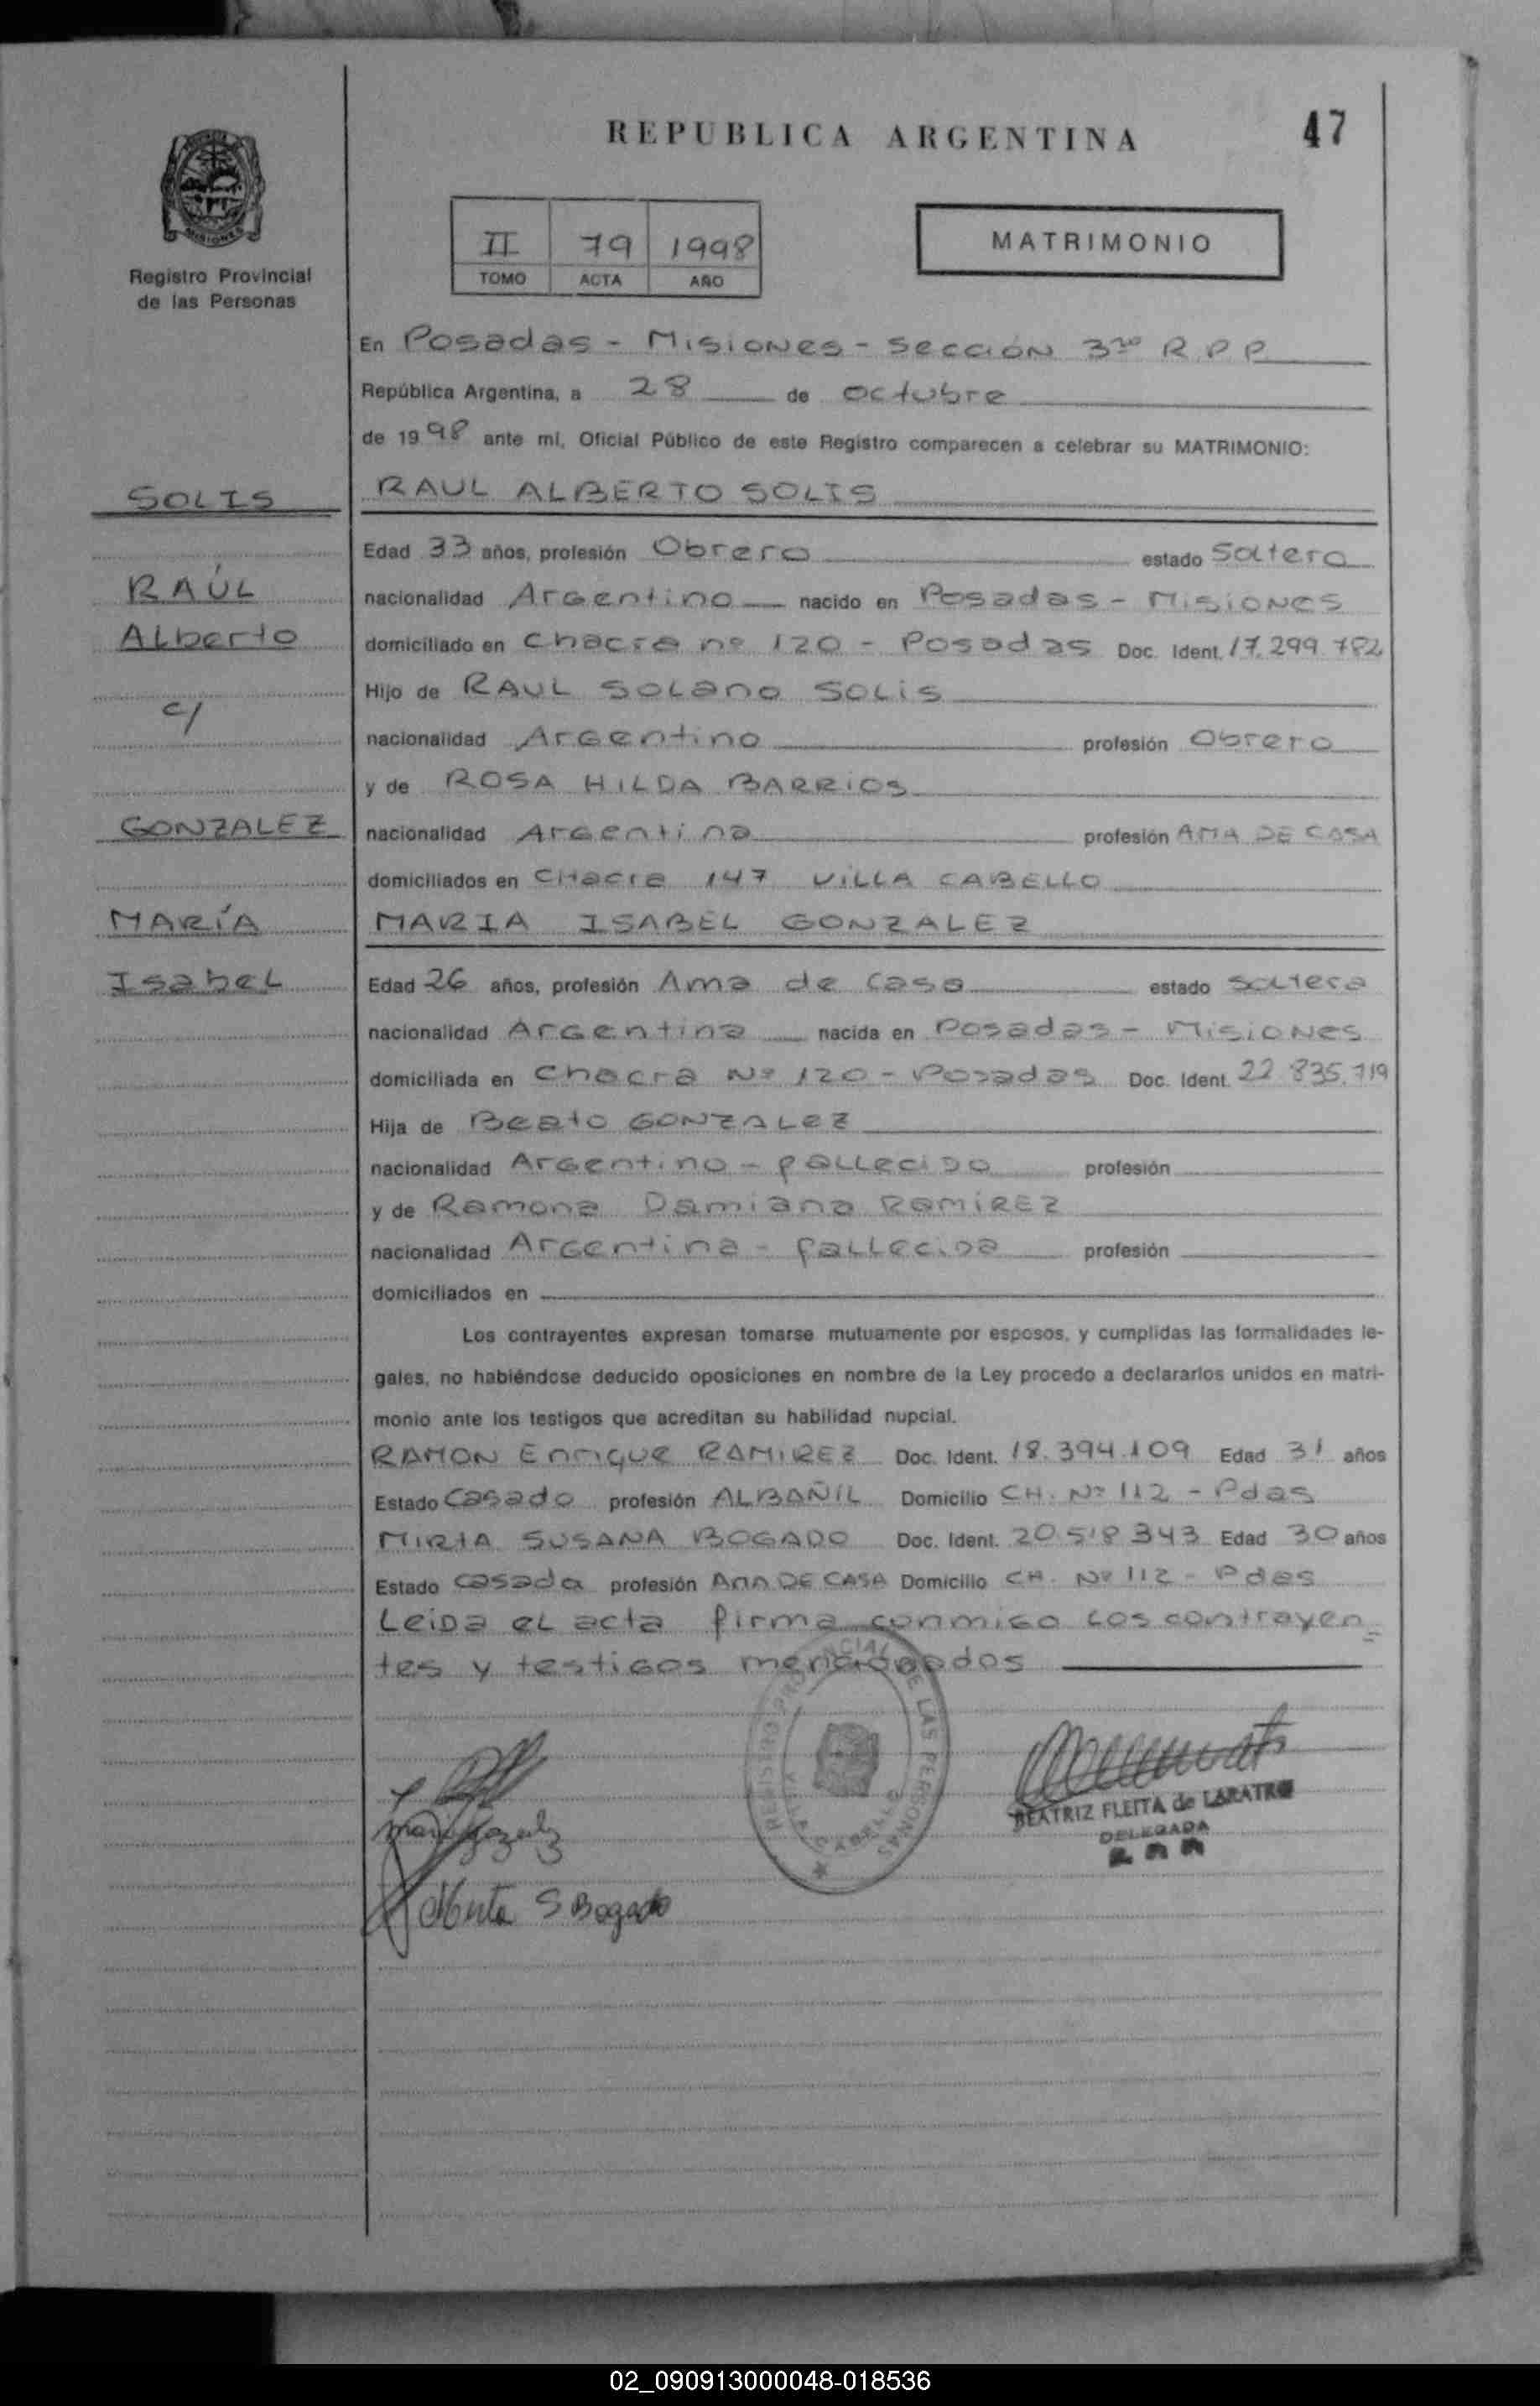 REPUBLICA ARGENTINA
47
Registro Provincial
de las Personas
II 79 1998
TOMO ACTA AÑO
MATRIMONIO
En Posadas - Misiones - Sección 3ra R P P
República Argentina, a 28 de octubre
de 1998 ante mí, Oficial Público de este Registro comparecen a celebrar su MATRIMONIO:
SOLIS
RAUL ALBERTO SOLIS
Edad 33 años, profesión Obrero estado Soltero
RAÚL
nacionalidad Argentino nacido en Posadas - Misiones
Alberto
domiciliado en Chacra nº 120 - Posadas Doc. Ident. 17.299.782
Hijo de RAUL Solano Solis
c/
nacionalidad Argentino profesión Obrero
y de ROSA HILDA BARRIOS
GONZALEZ
nacionalidad Argentina profesión AMA DE CASA
domiciliados en Chacra 147 VILLA CABELLO
MARÍA
MARIA ISABEL GONZALEZ
Isabel
Edad 26 años, profesión Ama de Casa estado soltera
nacionalidad Argentina nacida en Posadas - Misiones
domiciliada en Chacra Nº 120 - Posadas Doc. Ident. 22.835.719
Hija de Beato GONZALEZ
nacionalidad Argentino - fallecido profesión
y de Ramona Damiana RAMIREZ
nacionalidad Argentina - fallecida profesión
domiciliados en
Los contrayentes expresan tomarse mutuamente por esposos, y cumplidas las formalidades le-
gales, no habiéndose deducido oposiciones en nombre de la Ley procedo a declararlos unidos en matri-
monio ante los testigos que acreditan su habilidad nupcial.
RAMON Enrique RAMIREZ Doc. Ident. 18.394.109 Edad 31 años
Estado Casado profesión ALBAÑIL Domicilio CH. Nº 112 - Pdas
MIRTA SUSANA BOGADO Doc. Ident. 20.518.343 Edad 30 años
Estado casada profesión AMA DE CASA Domicilio CH. Nº 112 - Pdas
Leida el acta firma conmigo los contrayen=
tes y testigos mencionados
REGISTRO PROVINCIAL DE LAS PERSONAS
VILLA CABELLO
BEATRIZ FLEITA de LARATRO
DELEGADA
Mirta S Bogado
02_090913000048-018536